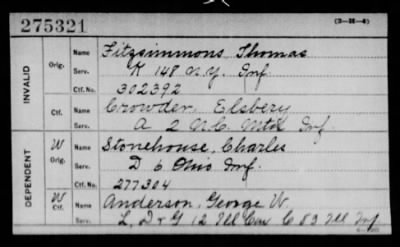 275321
(3-21-4)
INVALID
Orig.
Name Fitzsimmons Thomas
Serv. K 148 N.Y. Inf.
Ctf. No. 302392
Ctf.
Name Crowder, Elsbery
Serv. A 2 N.C. Mtd Inf.
DEPENDENT
W Orig.
Name Stonehouse, Charles
Serv. D 6 Ohio Inf.
Ctf. No. 277304
W Ctf.
Name Anderson, George W.
Serv. L, D & G 12 Ill Cav C 83 Ill Inf